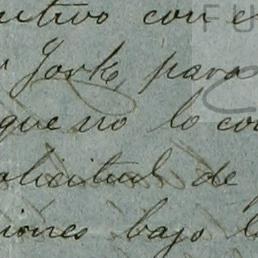 utivo con e
York, para
que no lo con
solicitud de
iones bajo l
FU
C